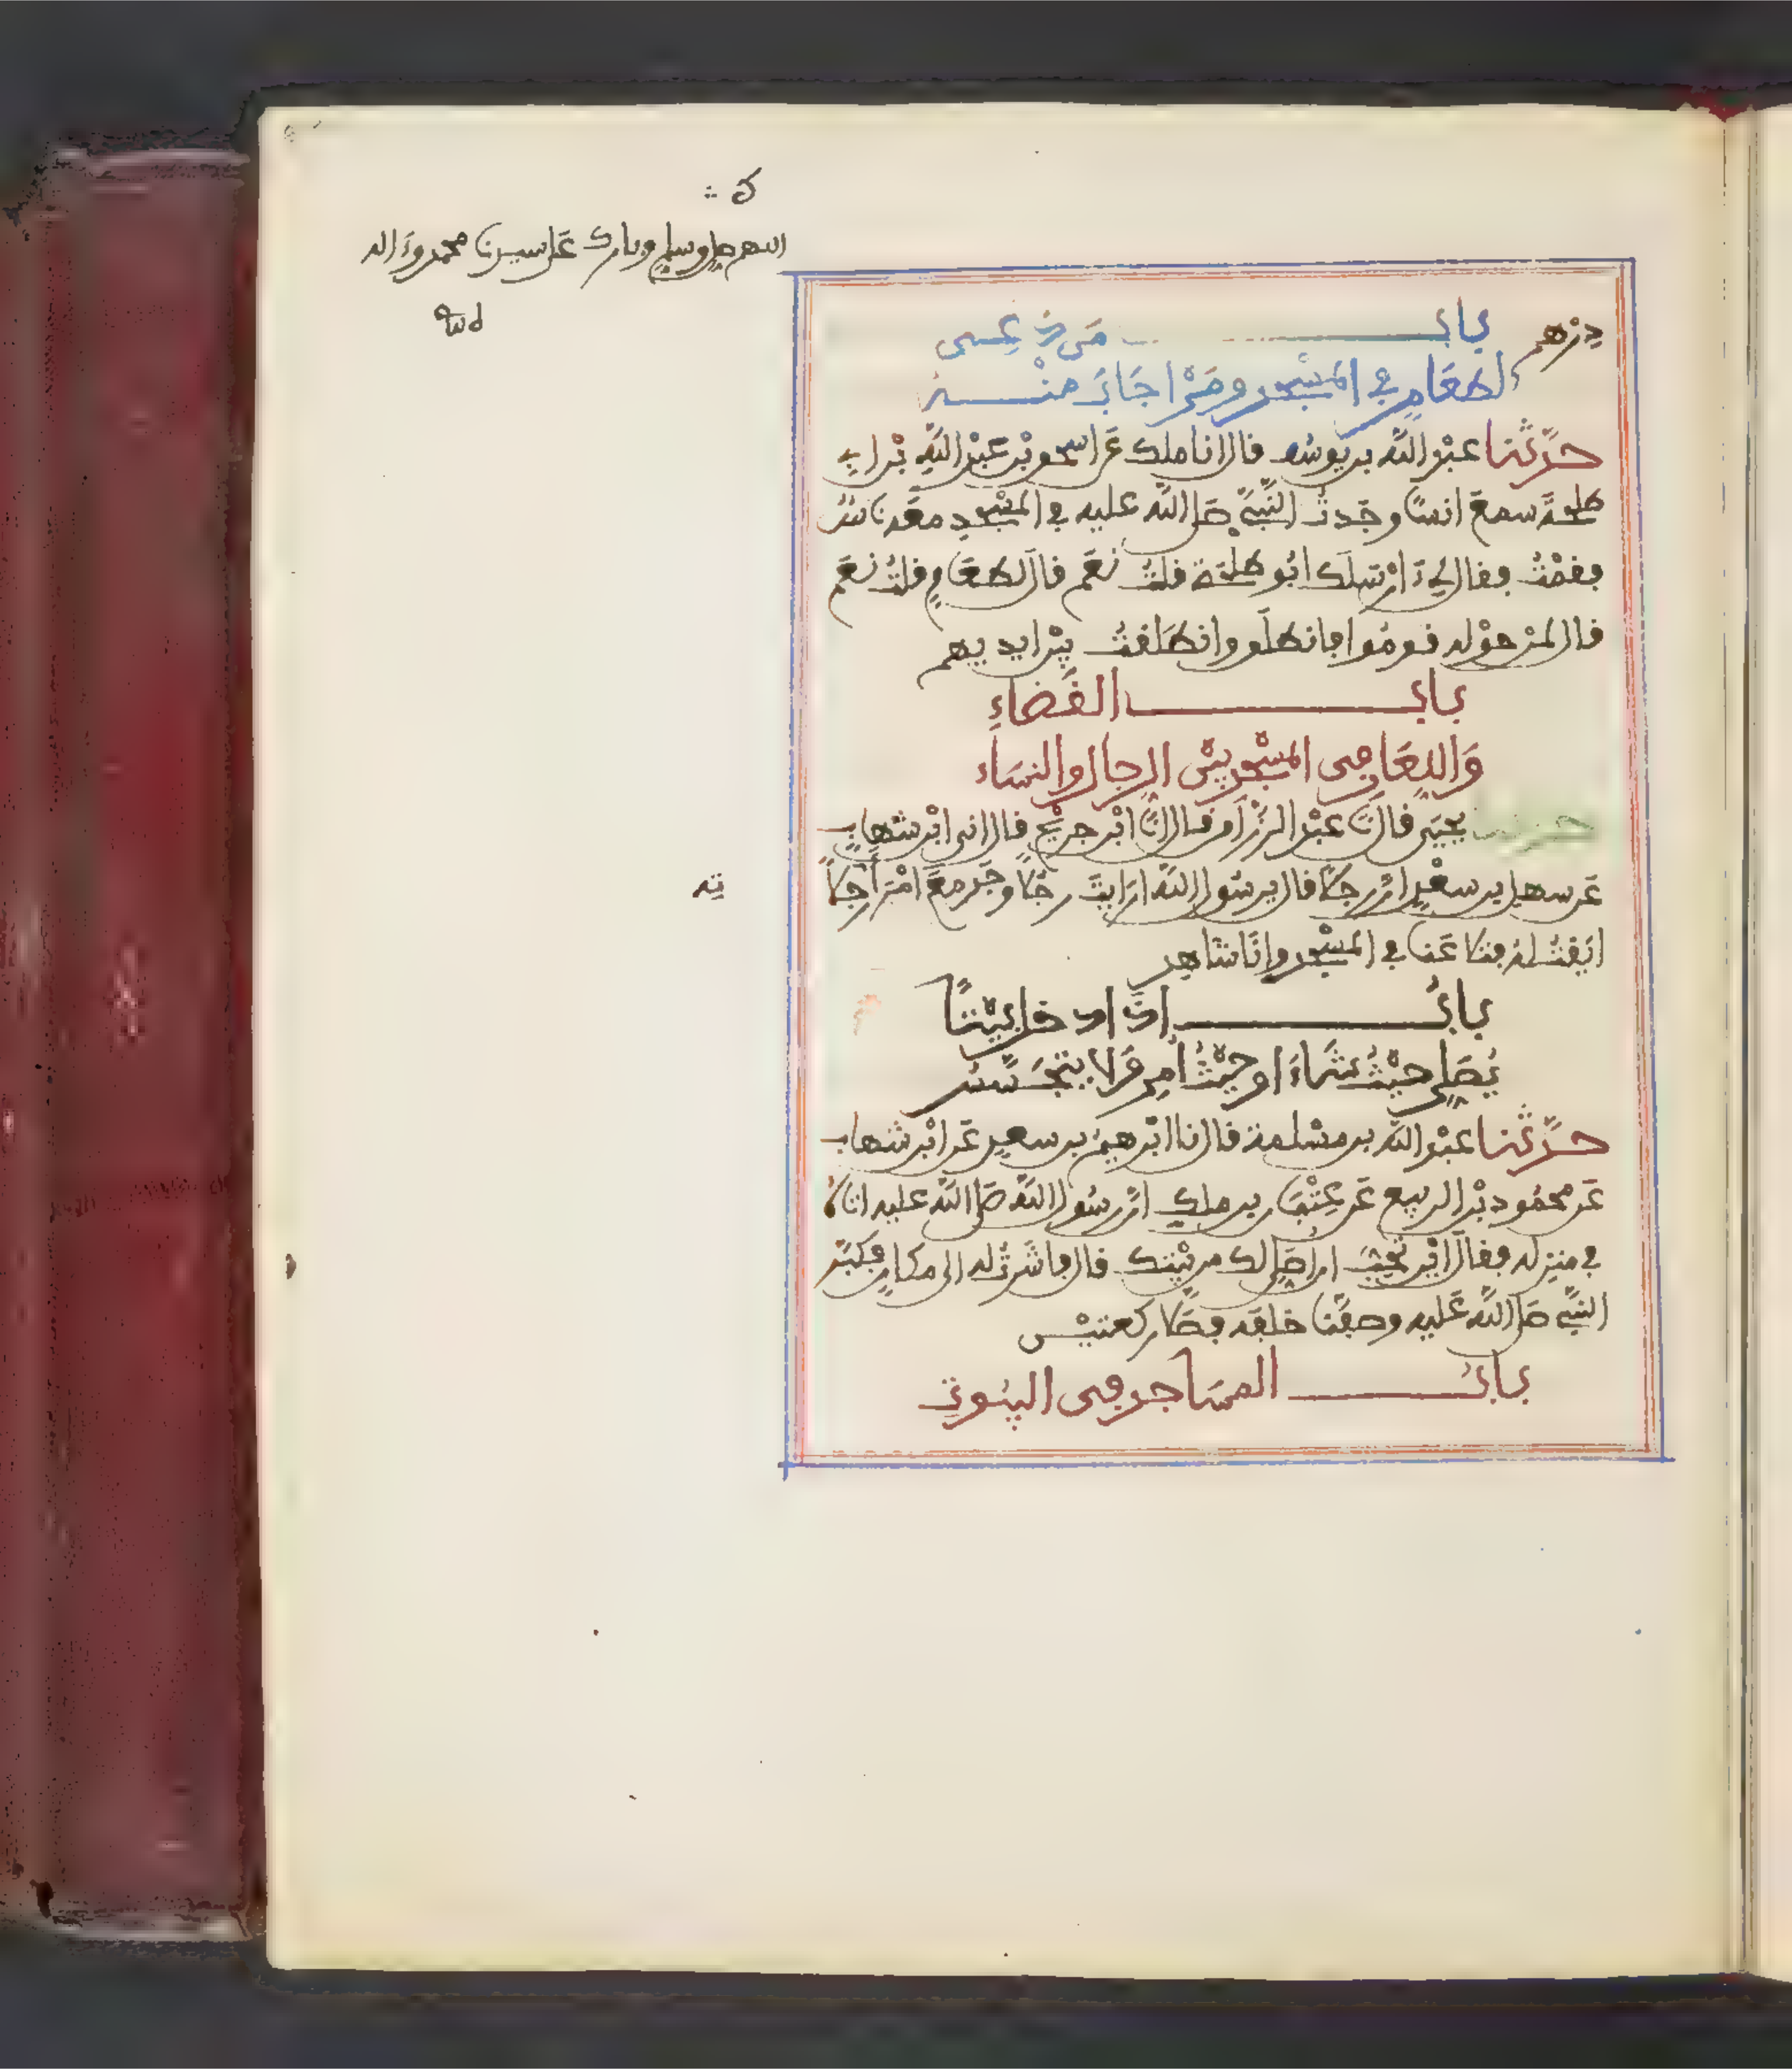 اللهم صل وسلم وبارك على سيدنا محمد وءاله
درهم باب من دعى
لطعام في المسجد ومن اجاب منه
حدثنا عبد الله بن يوسف قال انا ملك عن اسحق بن عبد الله بن ابي
طلحة سمع انسا وجدت النبي صلى الله عليه في المسجد معه ناس
فقمت فقال لي ءارسلك ابو طلحة قلت نعم قال لطعام قلت نعم
قال لمن حوله قوموا فانطلق وانطلقت بين ايديهم
باب القضاء
واللعان في المسجد بين الرجال والنساء
حدثنا يحيى قال نا عبد الرزاق قال انا ابن جريج قال اني ابن شهاب
عن سهل بن سعد ان رجلا قال يرسول الله ارايت رجلا وجد مع امرأته رجلا
ايقتله فتلاعنا في المسجد وانا شاهد
باب اذا دخل بيتا
يصلي حيث شاء او حيث امر ولا يتجسس
حدثنا عبد الله بن مسلمة قال نا ابرهيم بن سعد عن ابن شهاب
عن محمود بن الربيع عن عتبان بن ملك ان رسول الله صلى الله عليه اتاه
في منزله فقال اين تحب ان اصلي لك من بيتك قال فاشرت له الى مكان فكبر
النبي صلى الله عليه وصففنا خلفه فصلى ركعتين
باب المساجد في البيوت